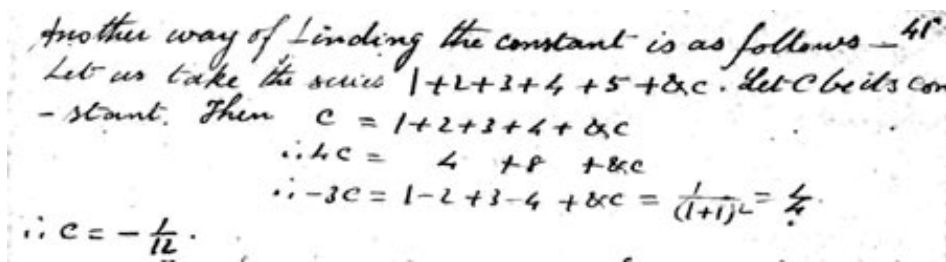 Another way of finding the constant is as follows — 41
Let us take the series 1+2+3+4+5+&c. Let C be its con
- stant. Then c = 1+2+3+4+&c
∴ 4c = 4 +8 +&c
∴ -3c = 1-2+3-4+&c = 1/(1+1)² = 1/4
∴ c = -1/12.